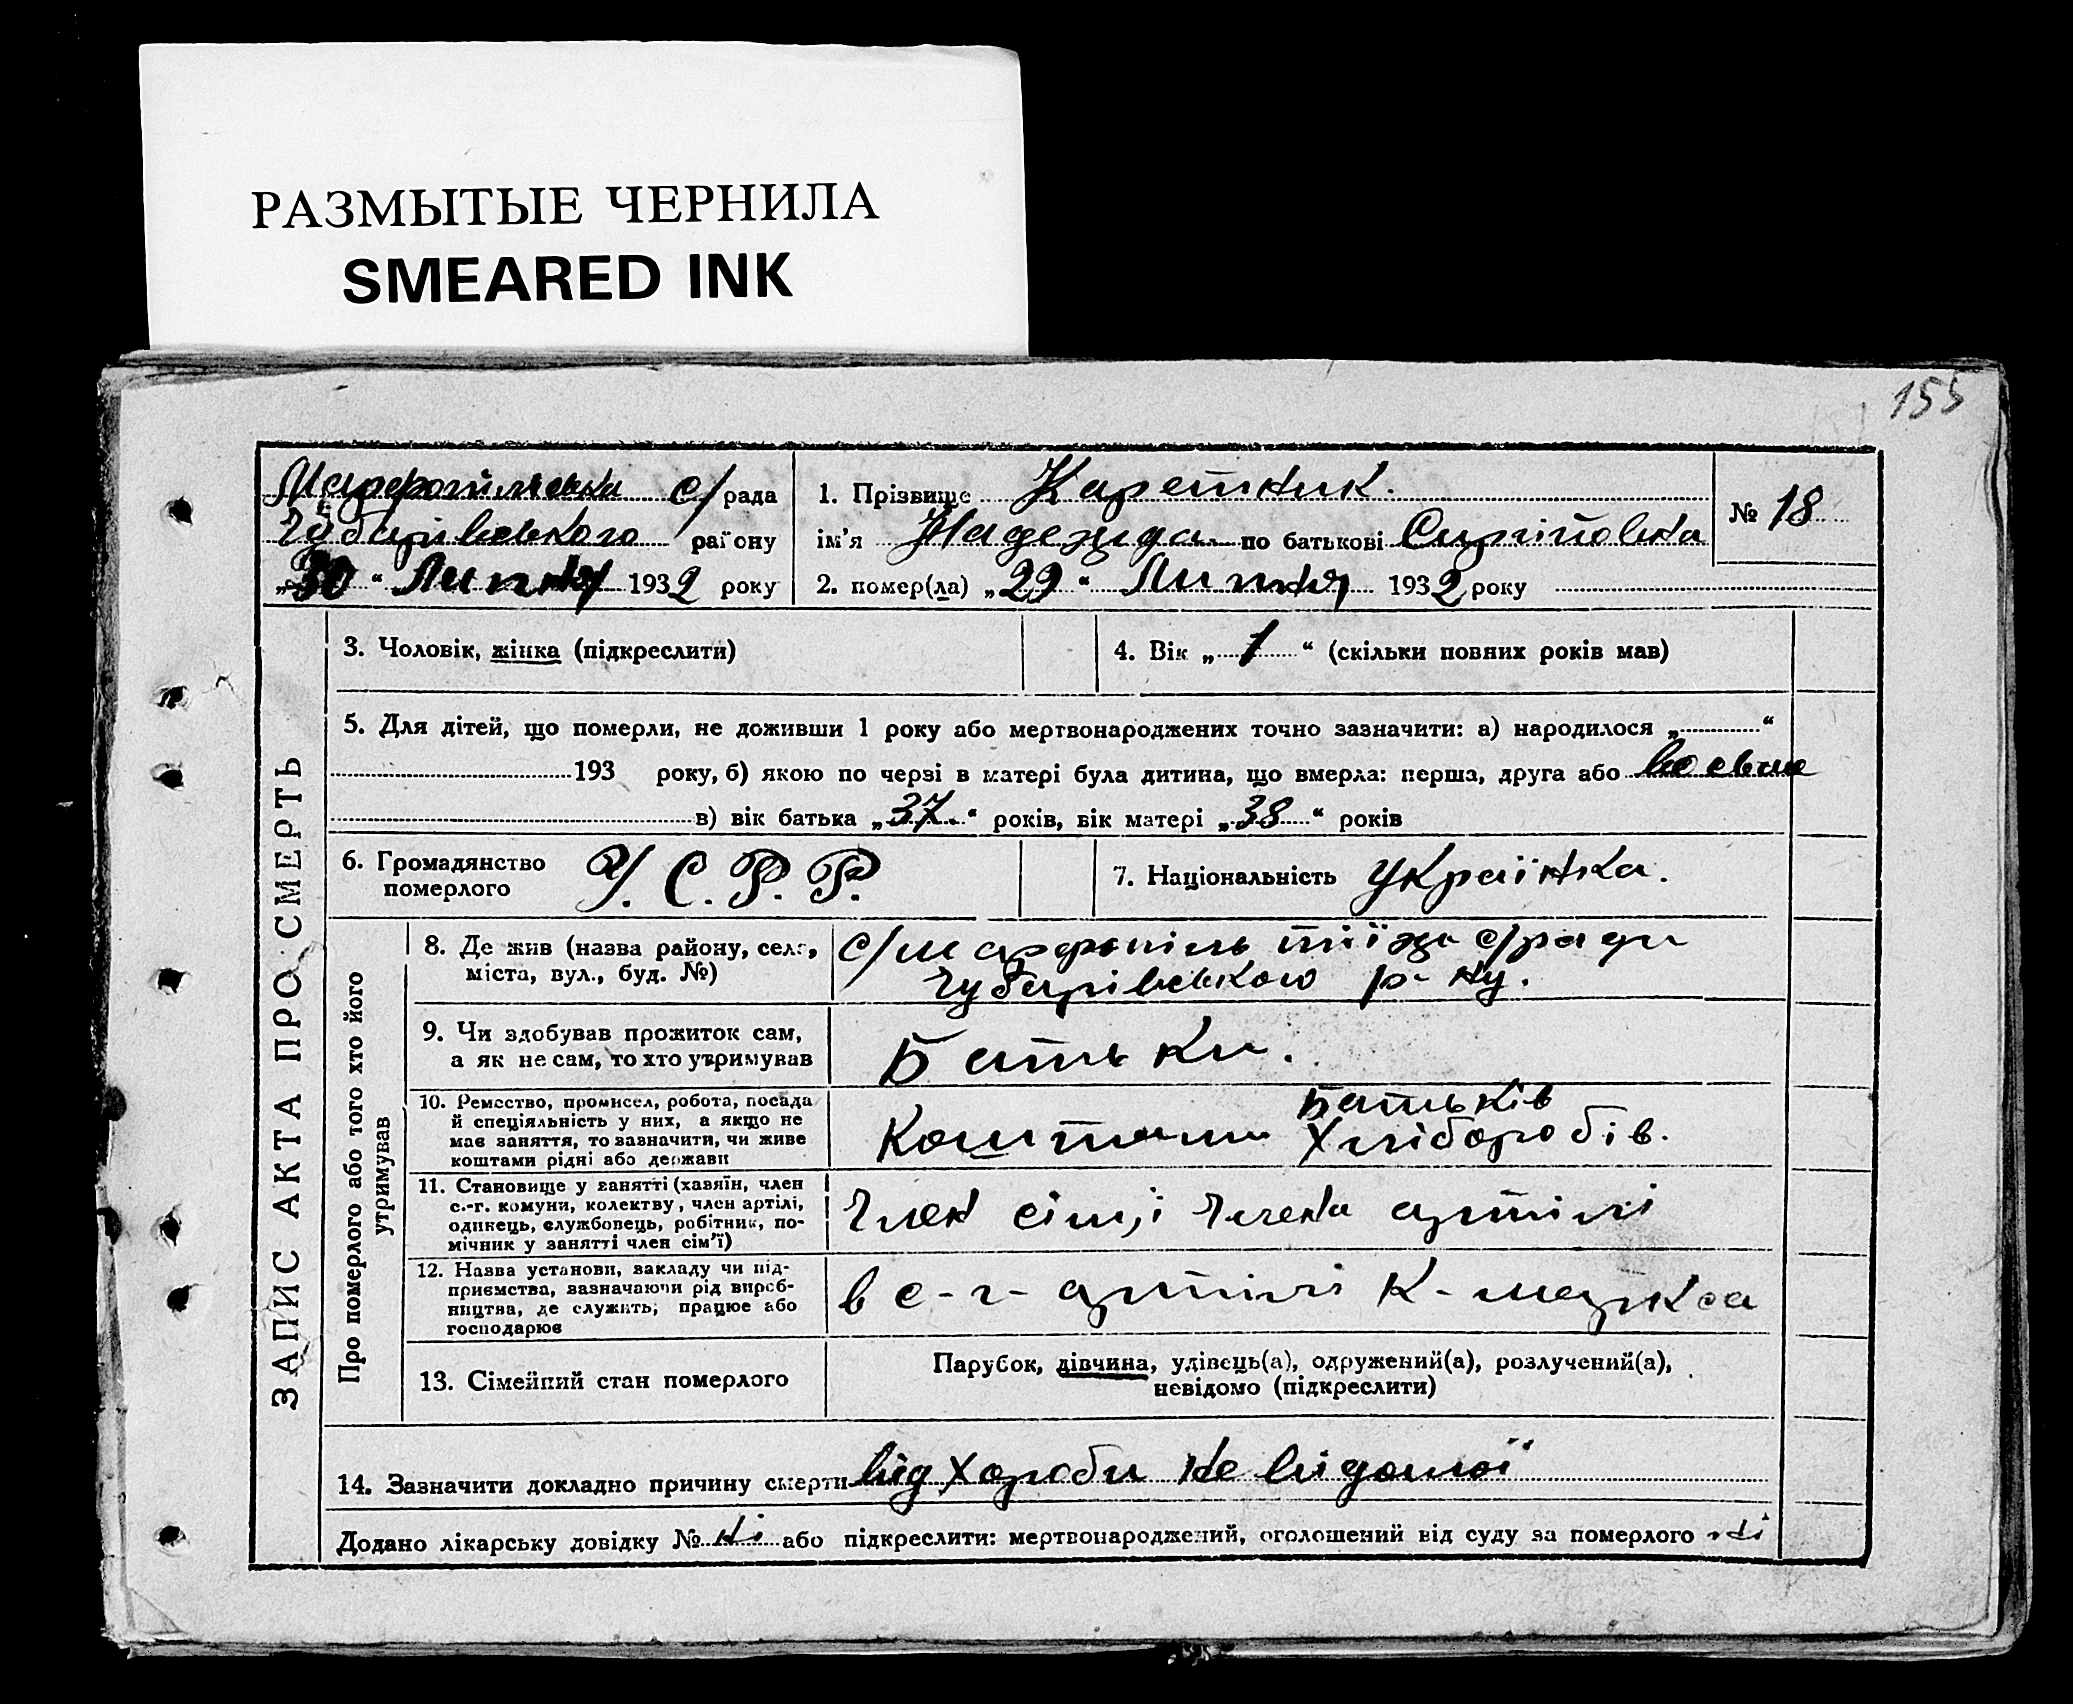 РАЗМЫТЫЕ ЧЕРНИЛА
SMEARED INK
155
Марфопільська с/рада
Чубарівського району
„30“ Липня 1932 року
1. Прізвище Каретник.
ім’я Надежда по батькові
2. помер(ла) „29“ Липня 1932 року
№ 18
ЗАПИС АКТА ПРО СМЕРТЬ
3. Чоловік, жінка (підкреслити)
4. Вік „1“ (скільки повних років мав)
5. Для дітей, що померли, не доживши 1 року або мертвонароджених точно зазначити: а) народилося „ “
193 року, б) якою по черзі в матері була дитина, що вмерла: перша, друга або восьме
в) вік батька „37“ років, вік матері „38“ років
6. Громадянство
померлого
У. С. Р. Р.
7. Національність Українка.
Про померлого або того хто його
утримував
8. Де жив (назва району, села,
міста, вул., буд. №)
с/Марфопіль тіїж с/ради
Чубарівського р-ну.
9. Чи здобував прожиток сам,
а як не сам, то хто утримував
Батьки.
10. Ремество, промисел, робота, посада
й спеціяльність у них, а якщо не
має заняття, то зазначити, чи живе
коштами рідні або держави
Батьків
Коштами Хліборобів.
11. Становище у занятті (хазяїн, член
с.-г. комуни, колектву, член артілі,
одинець, службовець, робітник, по-
мічник у занятті член сім’ї)
Член сімї члена артілі
12. Назва установи, закладу чи під-
приємства, зазначаючи рід вироб-
ництва, де служить, працює або
господарює
в с-г- артілі К-Маркса
13. Сімейний стан померлого
Парубок, дівчина, удівець(а), одружений(а), розлучений(а),
невідомо (підкреслити)
14. Зазначити докладно причину смерти від хороби не відомої
Додано лікарську довідку № ні або підкреслити: мертвонароджений, оголошений від суду за померлого ні